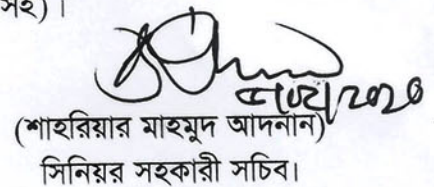 সহ)।
(শাহরিয়ার মাহমুদ আদনান)
সিনিয়র সহকারী সচিব।